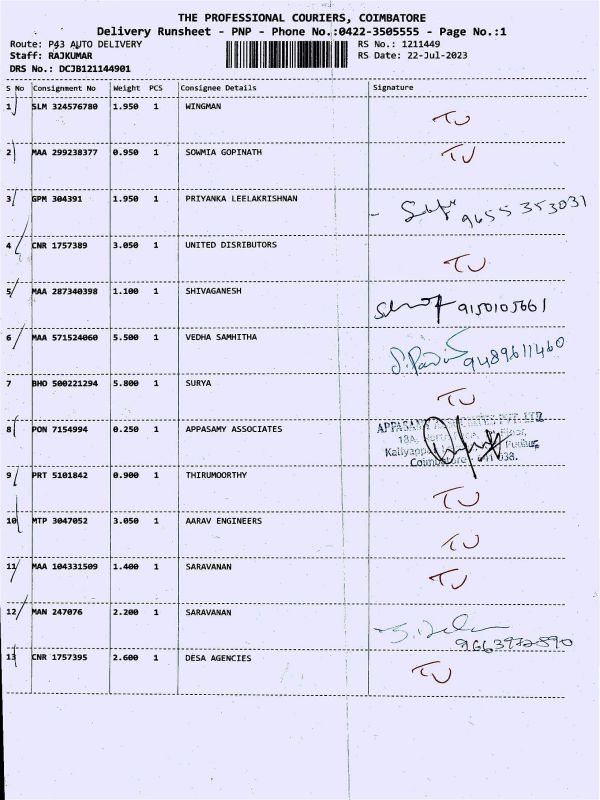 THE PROFESSIONAL COURIERS, COIMBATORE
Delivery Runsheet - PNP - Phone No.:0422-3505555 - Page No.:1
Route: P43 AUTO DELIVERY RS No.: 1211449
Staff: RAJKUMAR RS Date: 22-Jul-2023
DRS No.: DCJB121144901
S No Consignment No Weight PCS Consignee Details Signature
1 SLM 324576780 1.950 1 WINGMAN TU
2 MAA 299238377 0.950 1 SOWMIA GOPINATH TU
3 GPM 304391 1.950 1 PRIYANKA LEELAKRISHNAN 9655353031
4 CNR 1757389 3.050 1 UNITED DISRIBUTORS TU
5 MAA 287340398 1.100 1 SHIVAGANESH 9150105661
6 MAA 571524060 5.500 1 VEDHA SAMHITHA 9489611460
7 BHO 500221294 5.800 1 SURYA TU
8 PON 7154994 0.250 1 APPASAMY ASSOCIATES
APPASAMY ASSOCIATES PVT. LTD
18A, Floor,
Pudur,
Coimbatore - 641 038.
9 PRT 5101842 0.900 1 THIRUMOORTHY TU
10 MTP 3047052 3.050 1 AARAV ENGINEERS TU
11 MAA 104331509 1.400 1 SARAVANAN TU
12 MAN 247076 2.200 1 SARAVANAN
9663972890
13 CNR 1757395 2.600 1 DESA AGENCIES TU